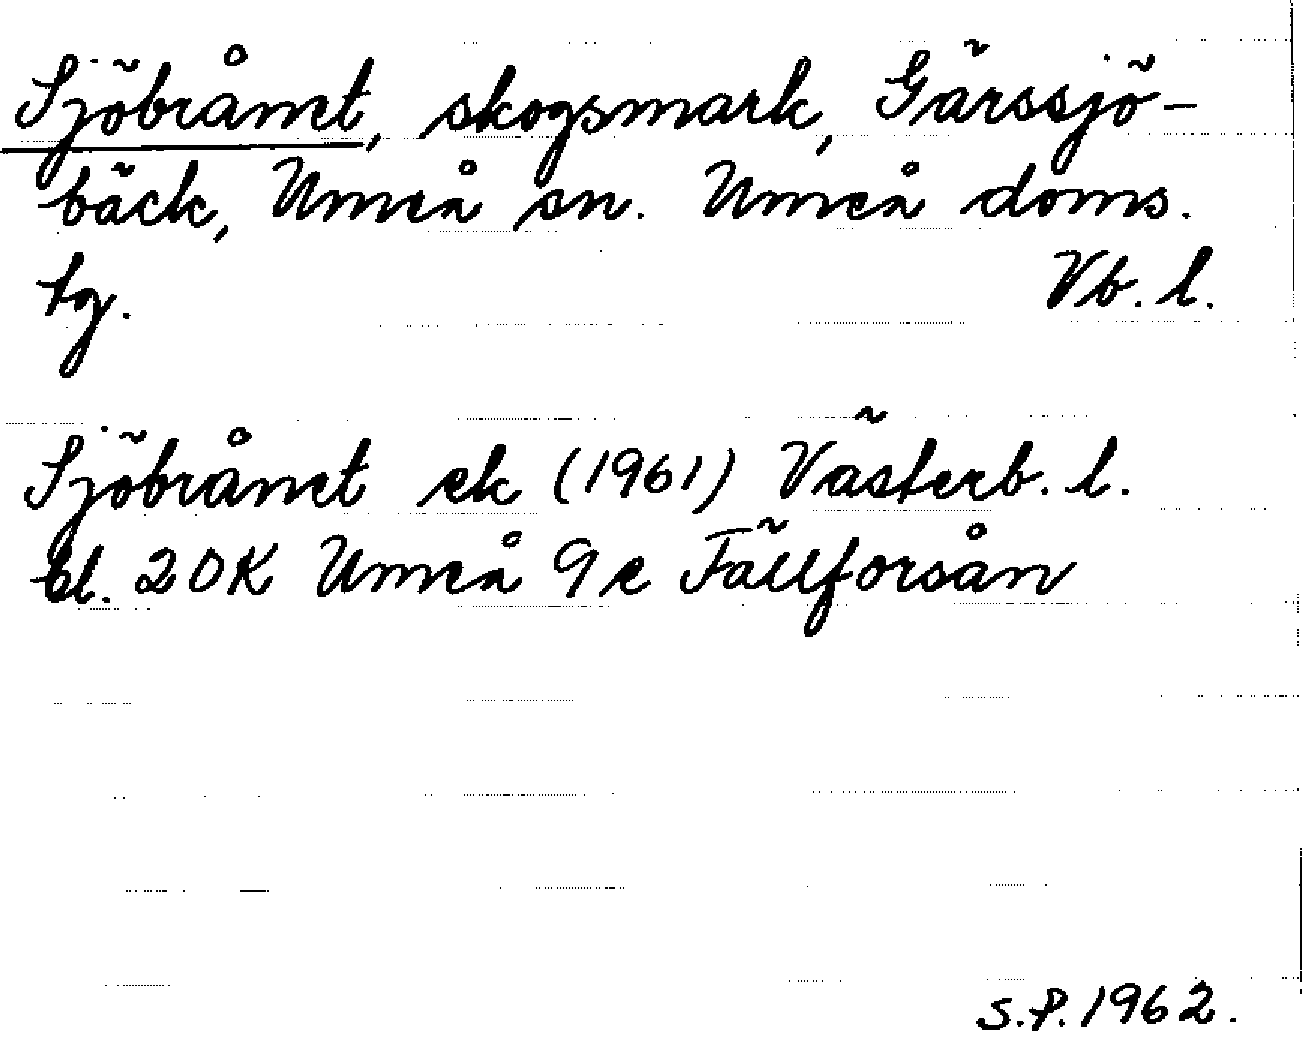 Sjöbrånet, skogsmark, Gärssjö-
bäck, Umeå sn. Umeå doms.
tg. Vb. l.
Sjöbrånet ek (1961) Västerb. l.
bl. 20K Umeå 9e Fällforsån
S.P. 1962.